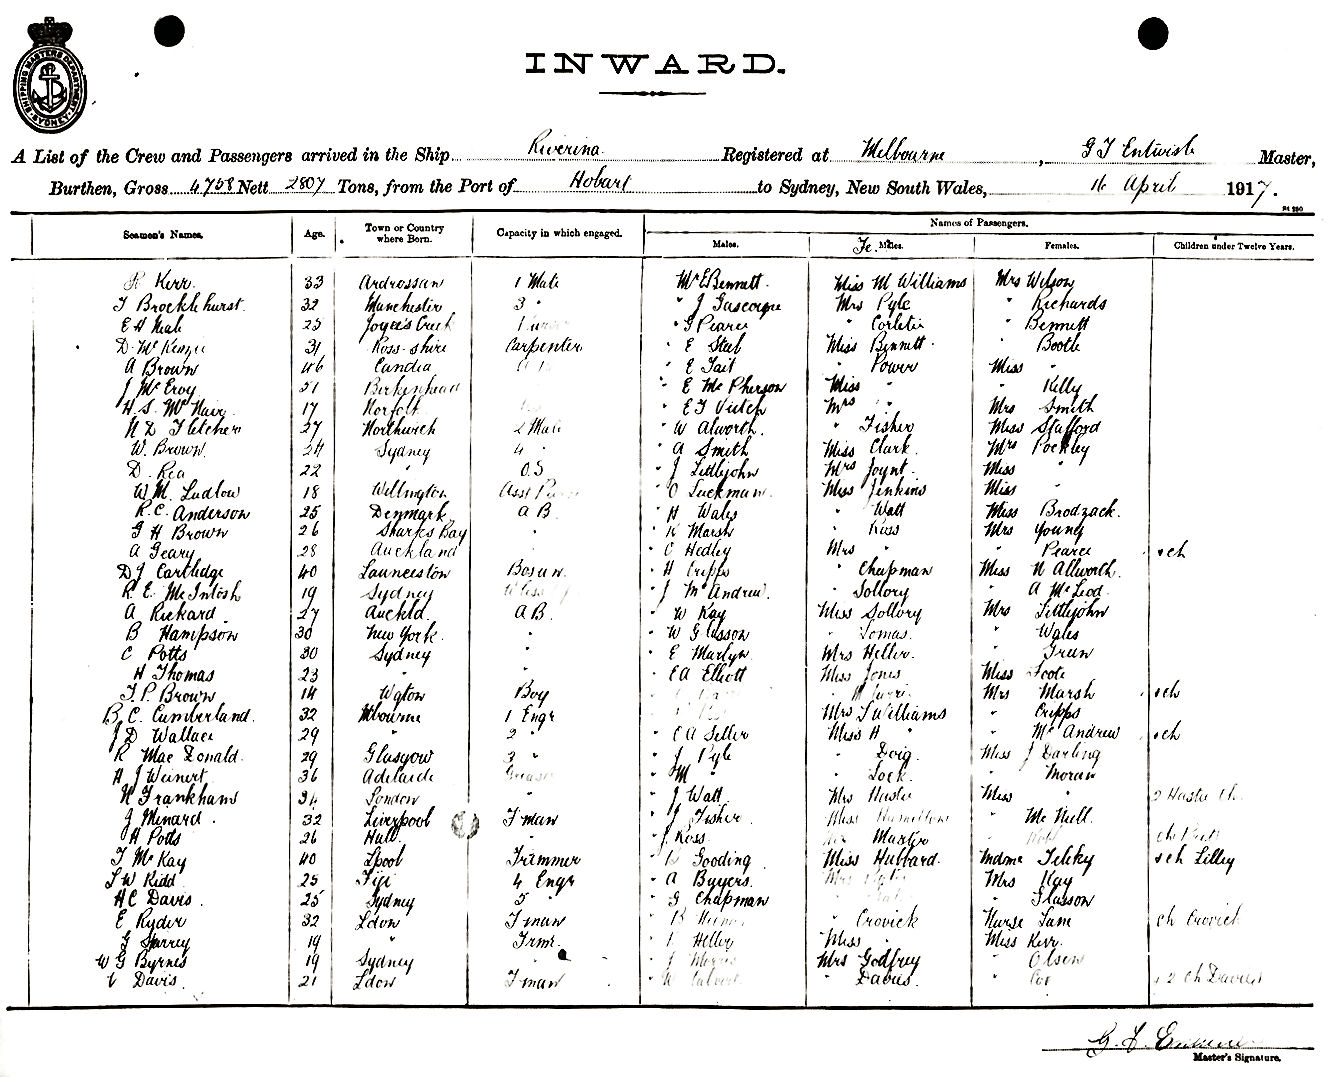 SHIPPING MASTERS DEPARTMENT SYDNEY
INWARD.
A List of the Crew and Passengers arrived in the Ship Riverina Registered at Melbourne, G T Entwisle Master,
Burthen, Gross 4758 Nett 2807 Tons, from the Port of Hobart to Sydney, New South Wales, 16 April 1917.
Seamen's Names. Age. Town or Country where Born. Capacity in which engaged. Names of Passengers.
Males. Fe Males. Females. Children under Twelve Years.
R Kerr. 33 Ardrossan 1 Mate Mr E Bennett Miss M Williams Mrs Wilson
T Brocklehurst. 32 Manchester 3 " " J Gascoigne Mrs Pyle " Richards
E H Neale 25 Joyce's Creek " G Pearce " " Bennett
D. McKenzie 31 Ross-shire Carpenter " E Steel Miss Bennett " Boote
A Brown 46 Candia " E Tait " Power Miss "
J McEroy 51 Birkenhead " E McPherson Miss " " Kelly
H. S. McNair. 17 Norfolk " E J Veitch Mrs " Mrs Smith
N D Fletcher 27 Northwich 2 Mate " W Alworth. " Fisher Miss Stafford
W. Brown. 24 Sydney 4 " " A Smith Miss Clark. Mrs Pockley
D. Rea 22 " O.S. " J Littlejohn Mrs Joynt. Miss "
W. M. Ludlow 18 Wellington Asst " O Luckman. Miss Jenkins Miss "
R. C. Anderson 25 Denmark A B. " H Wales " Watt Miss Brodzack.
G H Brown 26 Sharks Bay " " K Marsh " Ross Mrs Young
A Geary 28 Auckland " " C Hedley Mrs " " Pearce " ch
D J Cartlidge 40 Launceston Bosun. " H Cripps " Chapman Miss N Allworth.
R. E. McIntosh 19 Sydney " J McAndrew. " Sollory " A McLeod.
A Rickard 27 Auckld. A B. " W Kay Miss Sollory Mrs Littlejohn
B Hampson 30 New York. " " W Glasson " Lomas. " Wales
C Potts 30 Sydney " " E Martyn Mrs Heller. "
H Thomas 23 " " " E A Elliott Miss Jones Miss Foote
T. P. Brown 14 Wgton Boy Mrs Marsh " ch
B. C. Cumberland. 32 Mbourne 1 Engr Mrs T Williams " Cripps
J D Wallace 29 " 2 " " C A Seller Miss H " " McAndrew " ch
R MacDonald. 29 Glasgow 3 " " J Pyle " Doig. Miss J Darling
H J Weinert. 36 Adelaide Greaser " M " " Lock. " Moran
N Frankham 34 London " " J Watt Mrs Hastie Miss " 2 Hastie Ch.
J Menard. 32 Liverpool F'man " J Fisher. Miss Hamilton " McNull.
H Potts 26 Hull. " J. Ross. Martin ch
T McKay 40 Lpool Trimmer " Gooding Miss Hubbard. Mdme Teleky " ch Lilley
L W Kidd 25 Fiji 4 Engr " A Buyers. Mrs Kay
H C Davis. 25 Sydney 5 " " G Chapman " Glasson
E Ryder 32 Ldon F'man " Crovick Nurse Lam ch Crovick
G Sperrey 19 " Trmr. " Heller Miss " Miss Kerr.
W G Byrnes 19 Sydney " " J Mrs Godfrey " Olsen
Davis. 21 Ldon F'man " W Calvert " Davies. " Cox " 2 Ch Davies
Master's Signature.